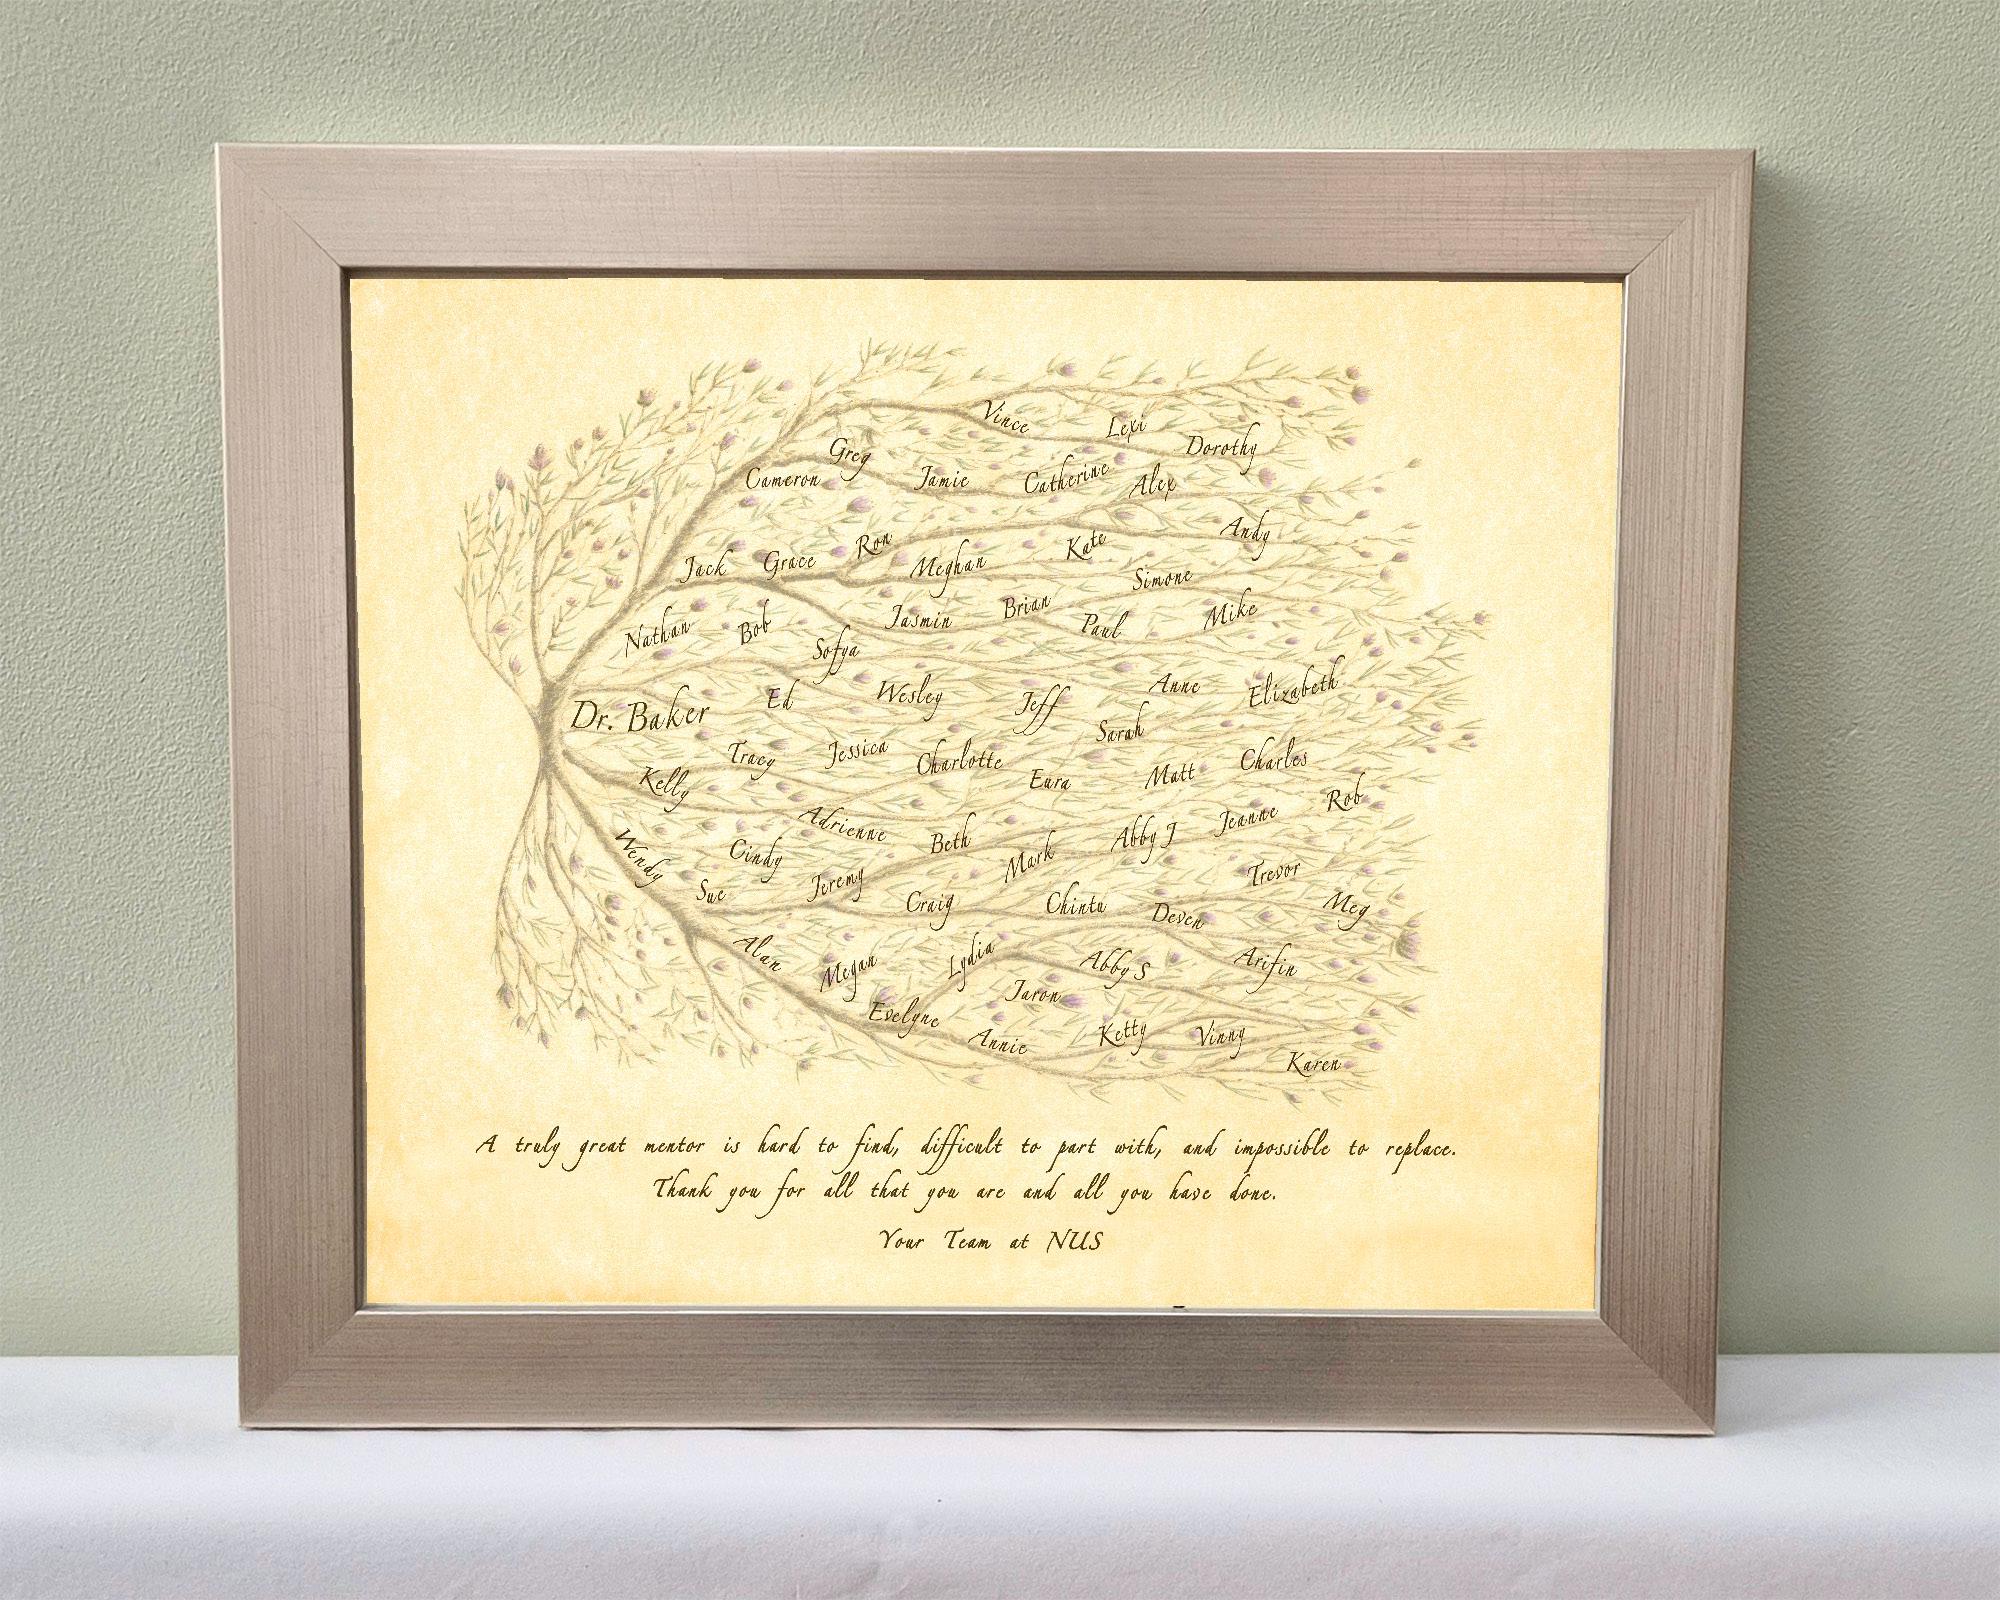 Vince
Lexi
Dorothy
Greg
Cameron
Jamie
Catherine
Alex
Andy
Jack
Grace
Ron
Meghan
Kate
Simone
Nathan
Bob
Sofya
Jasmin
Brian
Paul
Mike
Dr. Baker
Ed
Wesley
Jeff
Anne
Elizabeth
Sarah
Kelly
Tracy
Jessica
Charlotte
Eura
Matt
Charles
Rob
Adrienne
Beth
Mark
Abby J
Jeanne
Wendy
Cindy
Sue
Jeremy
Craig
Chintu
Deven
Trevor
Meg
Alan
Megan
Lydia
Abby S
Arifin
Evelyne
Jaron
Annie
Ketty
Vinny
Karen
A truly great mentor is hard to find, difficult to part with, and impossible to replace.
Thank you for all that you are and all you have done.
Your Team at NUS